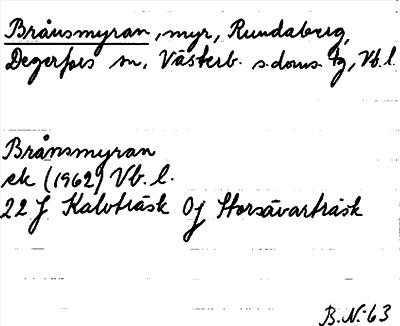 Brånsmyran, myr, Rundaberg,
Degerfors sn, Västerb. s. doms. tg, Vb. l.
Brånsmyran
ek (1962) Vb. l.
22 J Kalvträsk Of Storsävarträsk
B.N. 63